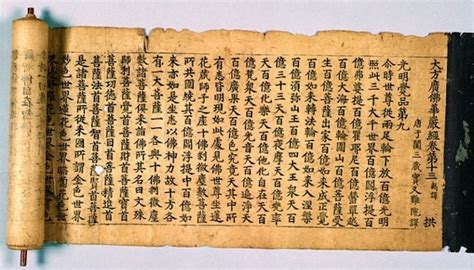 大方廣佛華嚴經卷第十三 新譯 拱
唐于闐三藏實叉難陀譯
光明覺品第九
尒時世尊從兩足輪下放百億光明
照此三千大千世界百億閻浮提百
億弗婆提百億瞿耶尼百億欝單越
百億大海百億輪圍山百億菩薩受
生百億菩薩出家百億如來成正覺
百億如來轉法輪百億如來入涅槃
百億須弥山王百億四天王衆天百
億三十三天百億夜摩天百億兜率
天百億化樂天百億他化自在天百
億梵衆天百億光音天百億遍淨天
百億廣果天百億色究竟天其中所
有悉皆明現如此處見佛世尊坐蓮
花藏師子之座十佛剎微塵數菩薩
所共圍遶其百億閻浮提中百億如
來亦如是坐悉以佛神力故十方各
有一大菩薩一一各與十佛剎微塵
數諸菩薩俱來詣佛所其名曰文殊
師利菩薩覺首菩薩財首菩薩寶首
菩薩功德首菩薩目首菩薩精進首
菩薩法首菩薩智首菩薩賢首菩薩
是諸菩薩所從來國所謂金色世界
妙色世界蓮花色世界